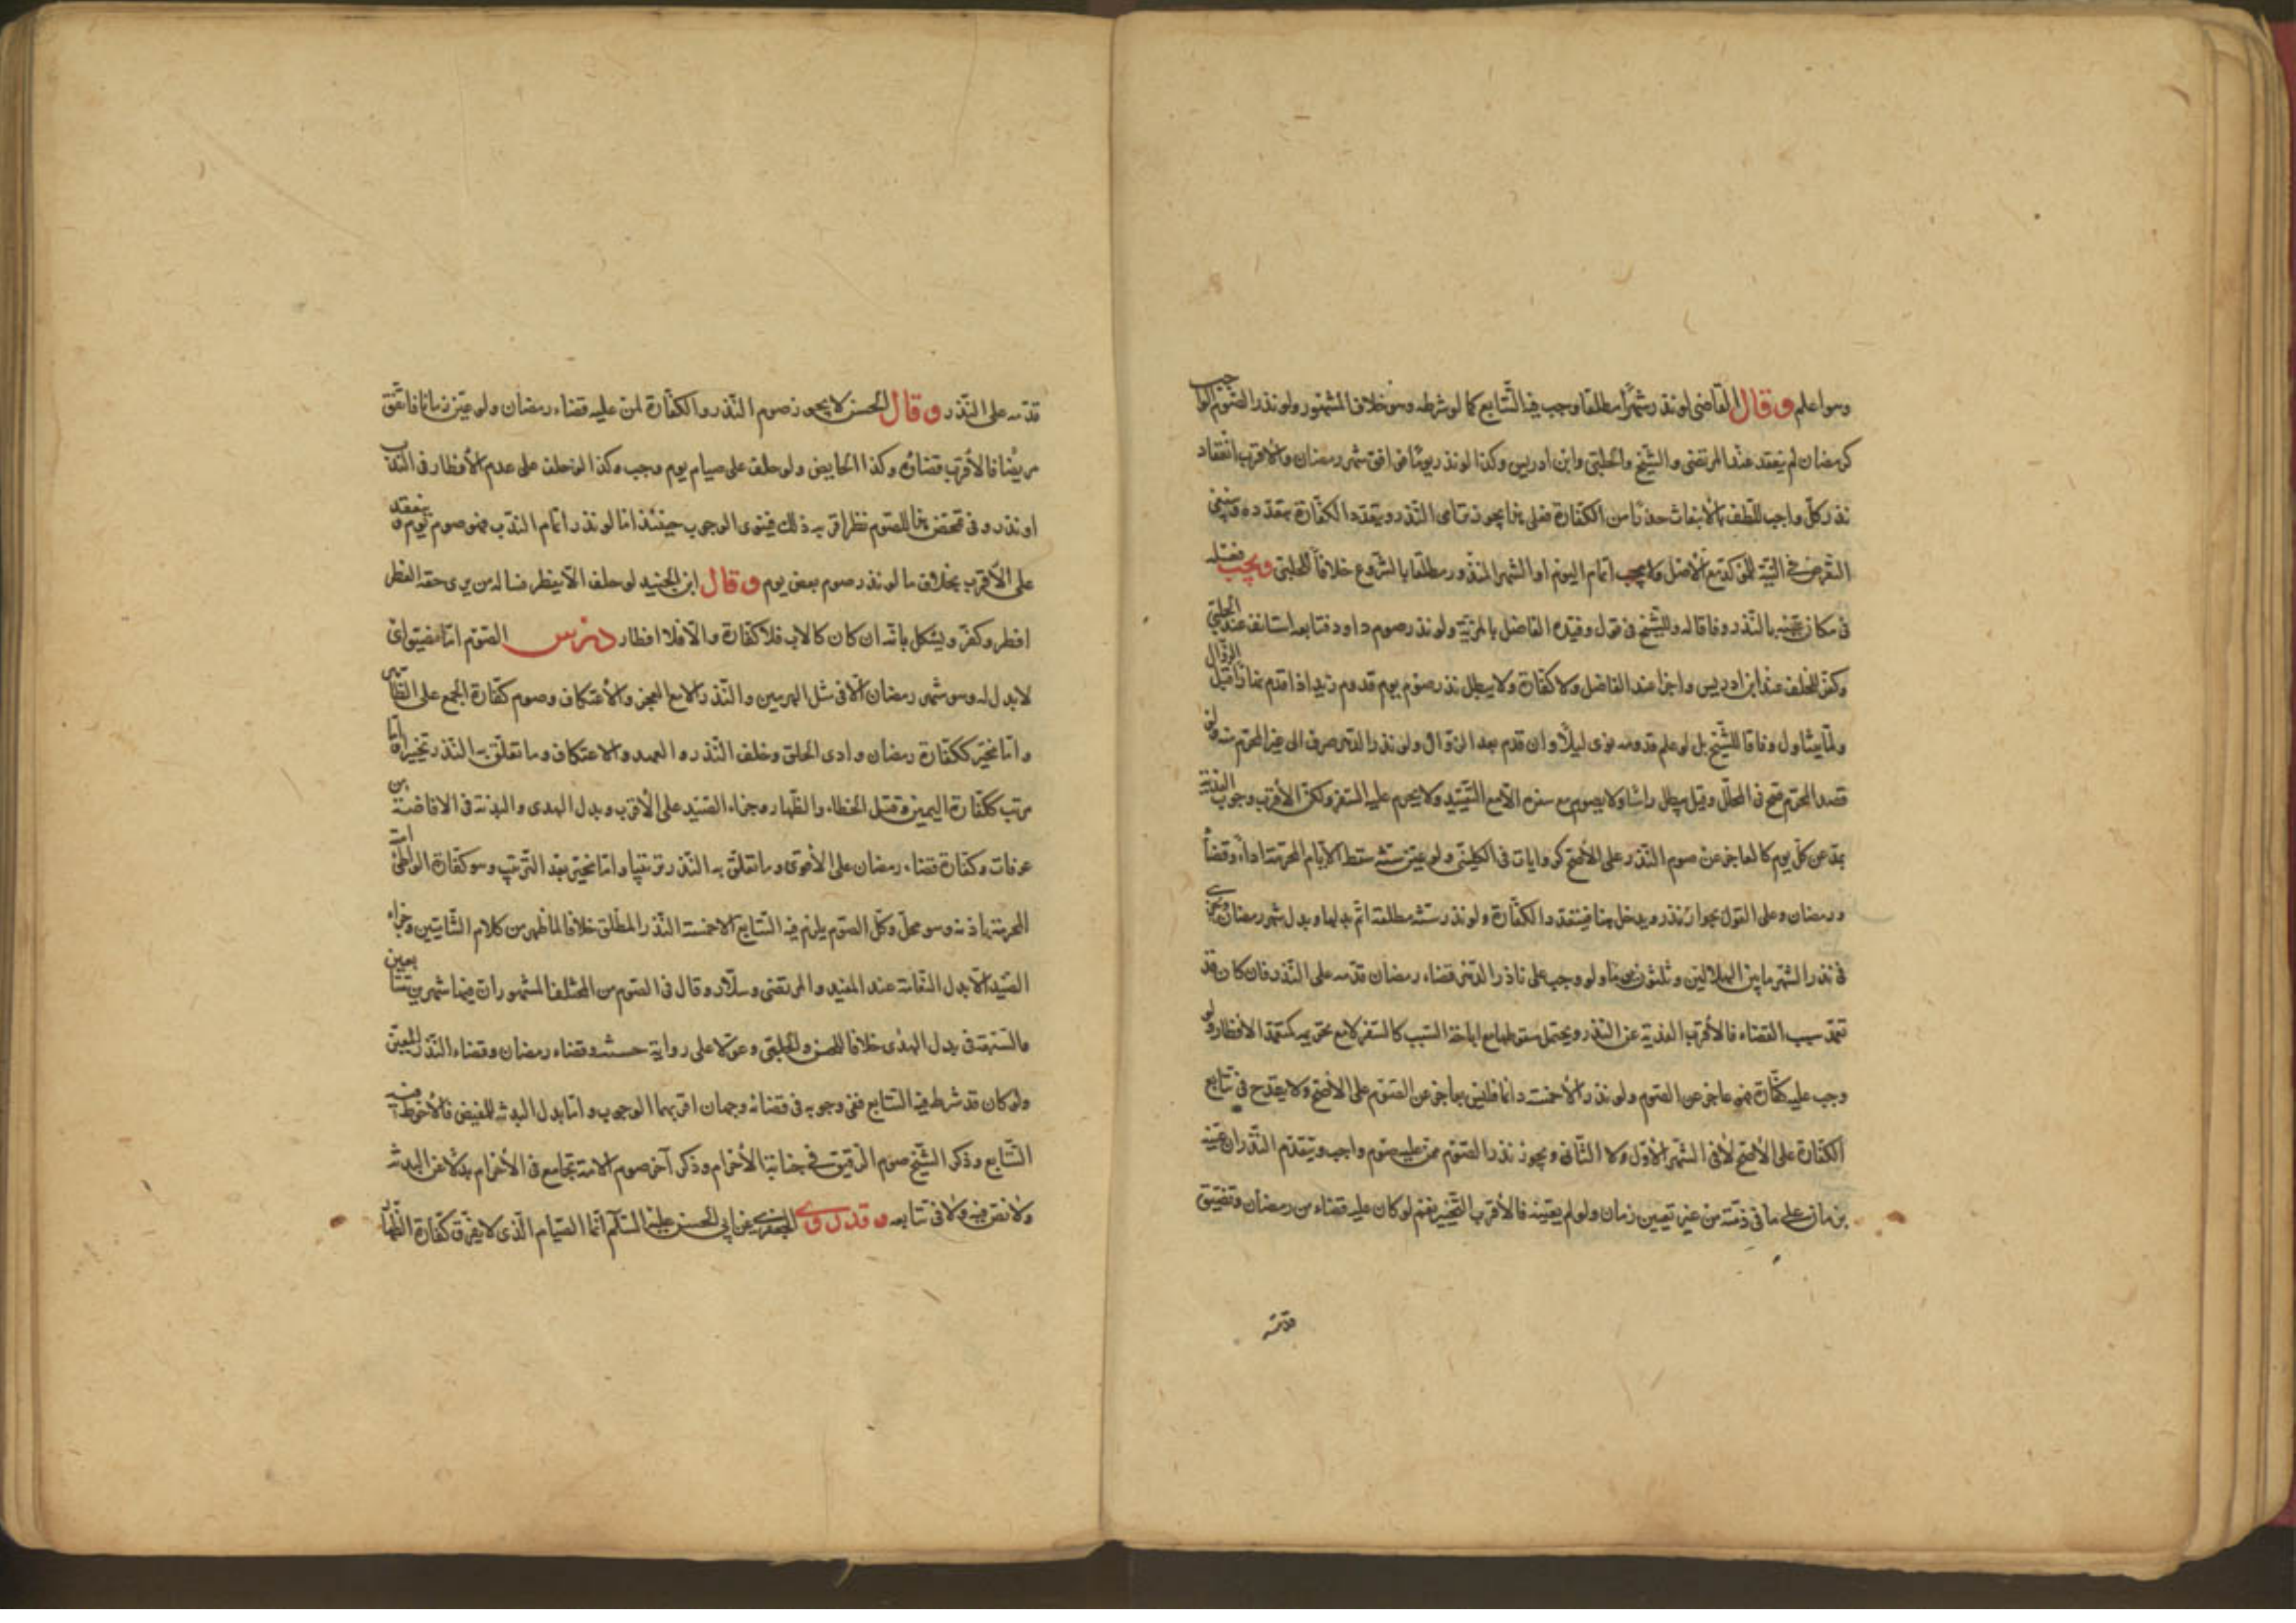 وهو اعلم وقال القاضى لو نذر شهرا مطلقا وجب فيه التتابع كما لو شرطه وهو خلاف المشهور ولو نذر الصوم الواجب
كرمضان لم ينعقد عند المرتضى والشيخ والحلبى وابن ادريس وكذا لو نذر يوما فوافق شهر رمضان والاقرب انعقاد
نذر كل واجب للطف بالانبعاث حذرا من الكفارة فعلى هذا يجوز ترامى النذر وتتعدد الكفارة بتعدده فينبغى
التعرض فى النية للمؤكد مع الاصل ولا يجب اتمام اليوم او الشهر المنذور مطلقا بالشروع خلافا للحلبى ويجب فعله
فى مكان عينه بالنذر وفاقا له وللشيخ فى قول وقيده الفاضل بالمزية ولو نذر صوم داود فتابعه استانف عند الحلبى
وكفر للخلف عند ابن ادريس واجزا عند الفاضل ولا كفارة ولا يبطل نذر صوم يوم قدوم زيد اذا قدم نهارا قبل الزوال
ولما يتناول وفاقا للشيخ بل لو علم قدومه نوى ليلا وان قدم بعد الزوال ولو نذر الدهر صرف الى غير المحرم منه ولو
قصد المحرم صح فى المحلل وقيل يبطل راسا ولا يصوم مع سفره الا مع التقييد ولا يحرم عليه السفر ولكن الاقرب وجوب الفدية
بمد عن كل يوم كالعاجز عن صوم النذر على الاصح كروايات فى الكلينى ولو عين سنة سقط الايام المحرمة اداء وقضاء
ورمضان وعلى القول بجواز نذره يدخل هنا فيتعدد الكفارة ولو نذر سنة مطلقة اتم بدلها وبدل شهر رمضان ويجزى
فى نذر الشهر ما بين الهلالين وثلثون يوما ولو وجب على ناذر الدهر قضاء رمضان قدمه على النذر فان كان قد
تعمد سبب القضاء فالاقرب الفدية عن النذر ويحتمل سقوطها مع اباحة السبب كالسفر لا مع تحريمه كتعمد الافطار ولو
وجب عليه كفارة فهو عاجز عن الصوم ولو نذر الاخمسة دائما فليس بعاجز عن الصوم على الاصح ولا يقدح فى تتابع
الكفارة على الاصح لا فى الشهر الاول ولا الثانى ويجوز نذر الصوم ممن عليه صوم واجب ويتقدم النذر ان عينه
بزمان على ما فى ذمته من غير تعيين زمان ولو لم يعينه فالاقرب التخيير نعم لو كان عليه قضاء من رمضان وتضيق
قدمه
قدمه على النذر وقال الحسن لا يجوز صوم النذر والكفارة لمن عليه قضاء رمضان ولو عين زمانا فاتفق
مريضا فالاقرب قضاؤه وكذا الحايض ولو حلف على صيام يوم وجب وكذا لو حلف على عدم الافطار فى الندب
او نذر وفى تمحض هنا للصوم نظر اقربه ذلك فينوى الوجوب حينئذ اما لو نذر اتمام الندب فهو صوم يوم وينعقد
على الاقرب بخلاف ما لو نذر صوم بعض يوم وقال ابن الجنيد لو حلف الا يفطر فساله من يرى حقه الفطر
افطر وكفر ويشكل بانه ان كان كالاب فلا كفارة والا فلا افطار درس الصوم اما مضيق اى
لا بدل له وهو شهر رمضان الا فى مثل الهرمين والنذر الا مع العجز والاعتكاف وصوم كفارة الجمع على الظاهر
واما مخير ككفارة رمضان واذى الحلق وخلف النذر والعهد والاعتكاف وما تعلق به النذر تخييرا واما
مرتب ككفارة اليمين وقتل الخطاء والظهار وجزاء الصيد على الاقرب وبدل الهدى والبدنة فى الافاضة من
عرفات وكفارة قضاء رمضان على الاقوى وما تعلق به النذر ترتيبا واما تخيير بعد الترتيب وهو كفارة الواطئ امته
المحرمة باذنه وهو محل وكل الصوم يلزم فيه التتابع الا خمسة النذر المطلق خلافا لما ظهر من كلام الشاميين وجزاء
الصيد الا بدل النعامة عند المفيد والمرتضى وسلار وقال فى الصوم من المختلف المشهور ان فيها شهرين متتابعين
والسبعة فى بدل الهدى خلافا للحسن والحلبى وعولا على رواية حسنة وقضاء رمضان وقضاء النذر المعين
ولو كان قد شرط فيه التتابع ففى وجوبه فى قضائه وجهان اقربهما الوجوب واما بدل البدنة للمفيض فالاحوط فيه
التتابع وذكر الشيخ صوم الرقيق فى جنايتها الاحرام وذكر آخر صوم الامة تجامع فى الاحرام بدلا عن البدنة
ولا نص فيه ولا فى تتابعه وقد روى الجعفرى عن ابى الحسن عليه السلام انما الصيام الذى لا يفرق كفارة الظهار